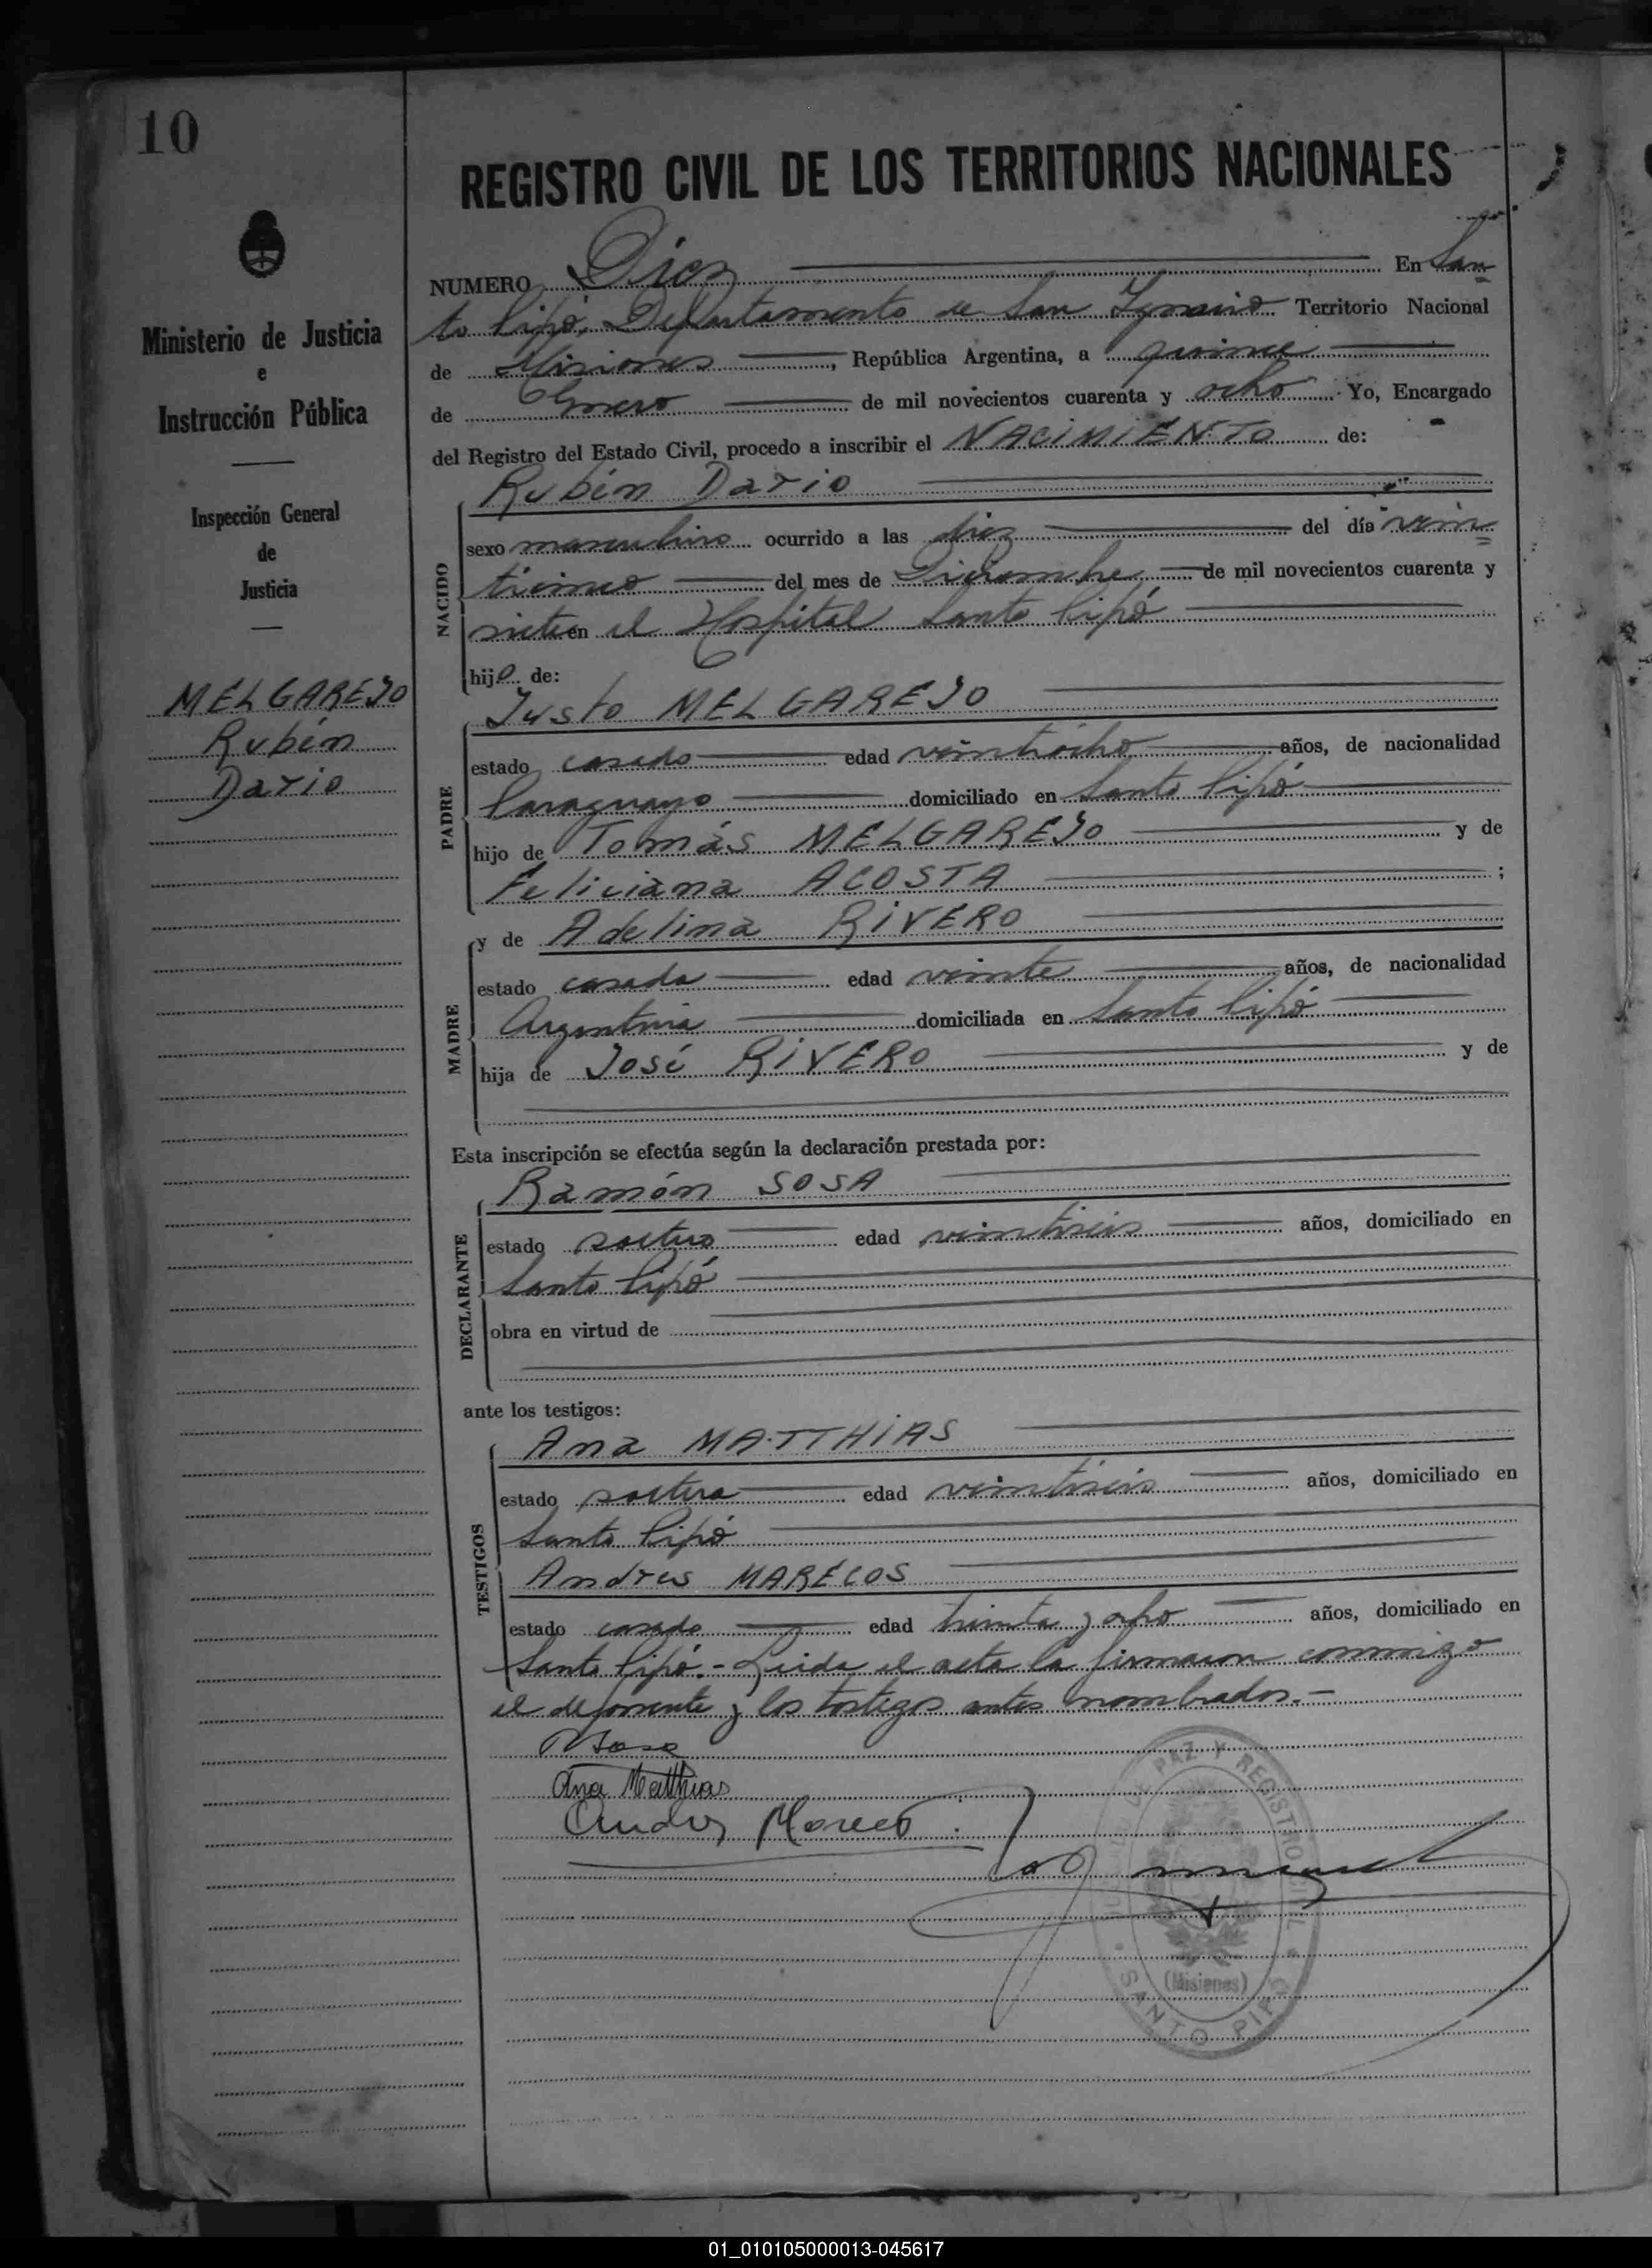 10
Ministerio de Justicia
e
Instrucción Pública
Inspección General
de
Justicia
MELGAREJO
Rubén
Dario
REGISTRO CIVIL DE LOS TERRITORIOS NACIONALES
NUMERO Diez En San
to Pipó, Departamento de San Ignacio Territorio Nacional
de Misiones, República Argentina, a quince
de Enero de mil novecientos cuarenta y ocho. Yo, Encargado
del Registro del Estado Civil, procedo a inscribir el NACIMIENTO de:
NACIDO
Rubén Dario
sexo masculino ocurrido a las diez del día vein
ticinco del mes de Diciembre de mil novecientos cuarenta y
siete en el Hospital Santo Pipó
hijo de:
PADRE
Justo MELGAREJO
estado casado edad veintiocho años, de nacionalidad
Paraguayo domiciliado en Santo Pipó
hijo de Tomás MELGAREJO y de
Feliciana ACOSTA ;
MADRE
y de Adelina RIVERO
estado casada edad veinte años, de nacionalidad
Argentina domiciliada en Santo Pipó
hija de José RIVERO y de
Esta inscripción se efectúa según la declaración prestada por:
DECLARANTE
Ramón SOSA
estado soltero edad veintiseis años, domiciliado en
Santo Pipó
obra en virtud de
ante los testigos:
TESTIGOS
Ana MATTHIAS
estado soltera edad veintiseis años, domiciliado en
Santo Pipó
Andres MARECOS
estado casado edad treinta y ocho años, domiciliado en
Santo Pipó.- Leida el acta la firmaron conmigo
el deponente y los testigos antes nombrados.-
R Sosa
Ana Matthias
Andres Mareco
PAZ Y REGISTRO CIVIL
(Misiones)
SANTO PIPÓ
01_010105000013-045617